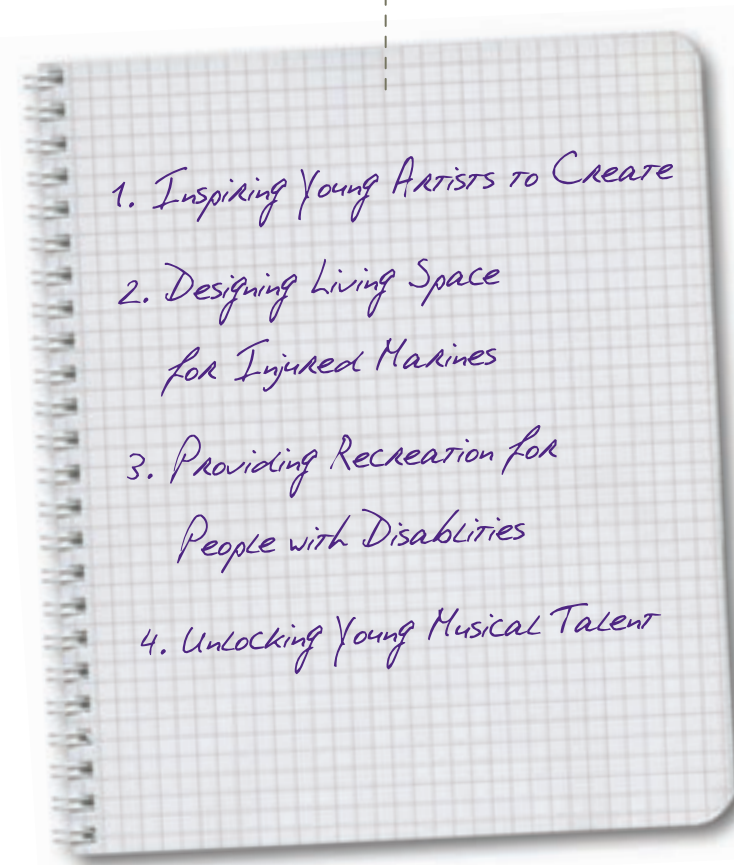 1. Inspiring Young Artists to Create
2. Designing Living Space
for Injured Marines
3. Providing Recreation for
People with Disablities
4. Unlocking Young Musical Talent